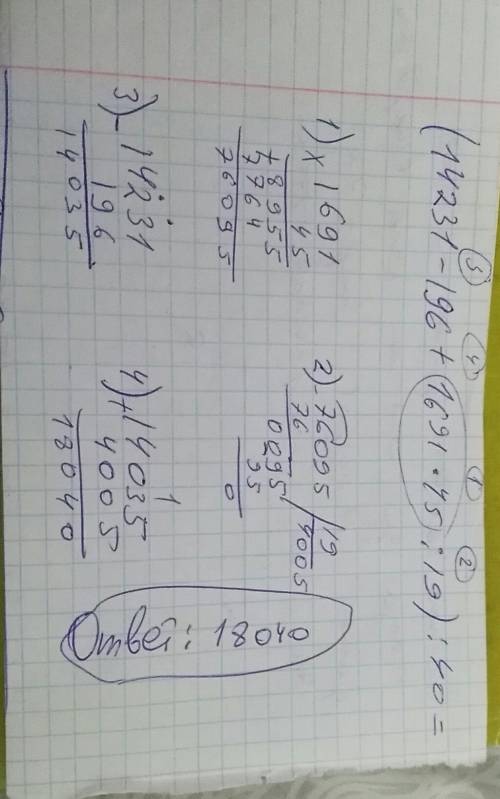 3 4 1 2
(14231 - 196 + 1691 · 45 : 19) : 40 =
1) × 1691
45
+ 8955
764
76095
2) - 76095 / 19
76 4005
0095
95
0
3) - 14231
196
14035
4) + 14035
1
4005
18040
Ответ: 18040